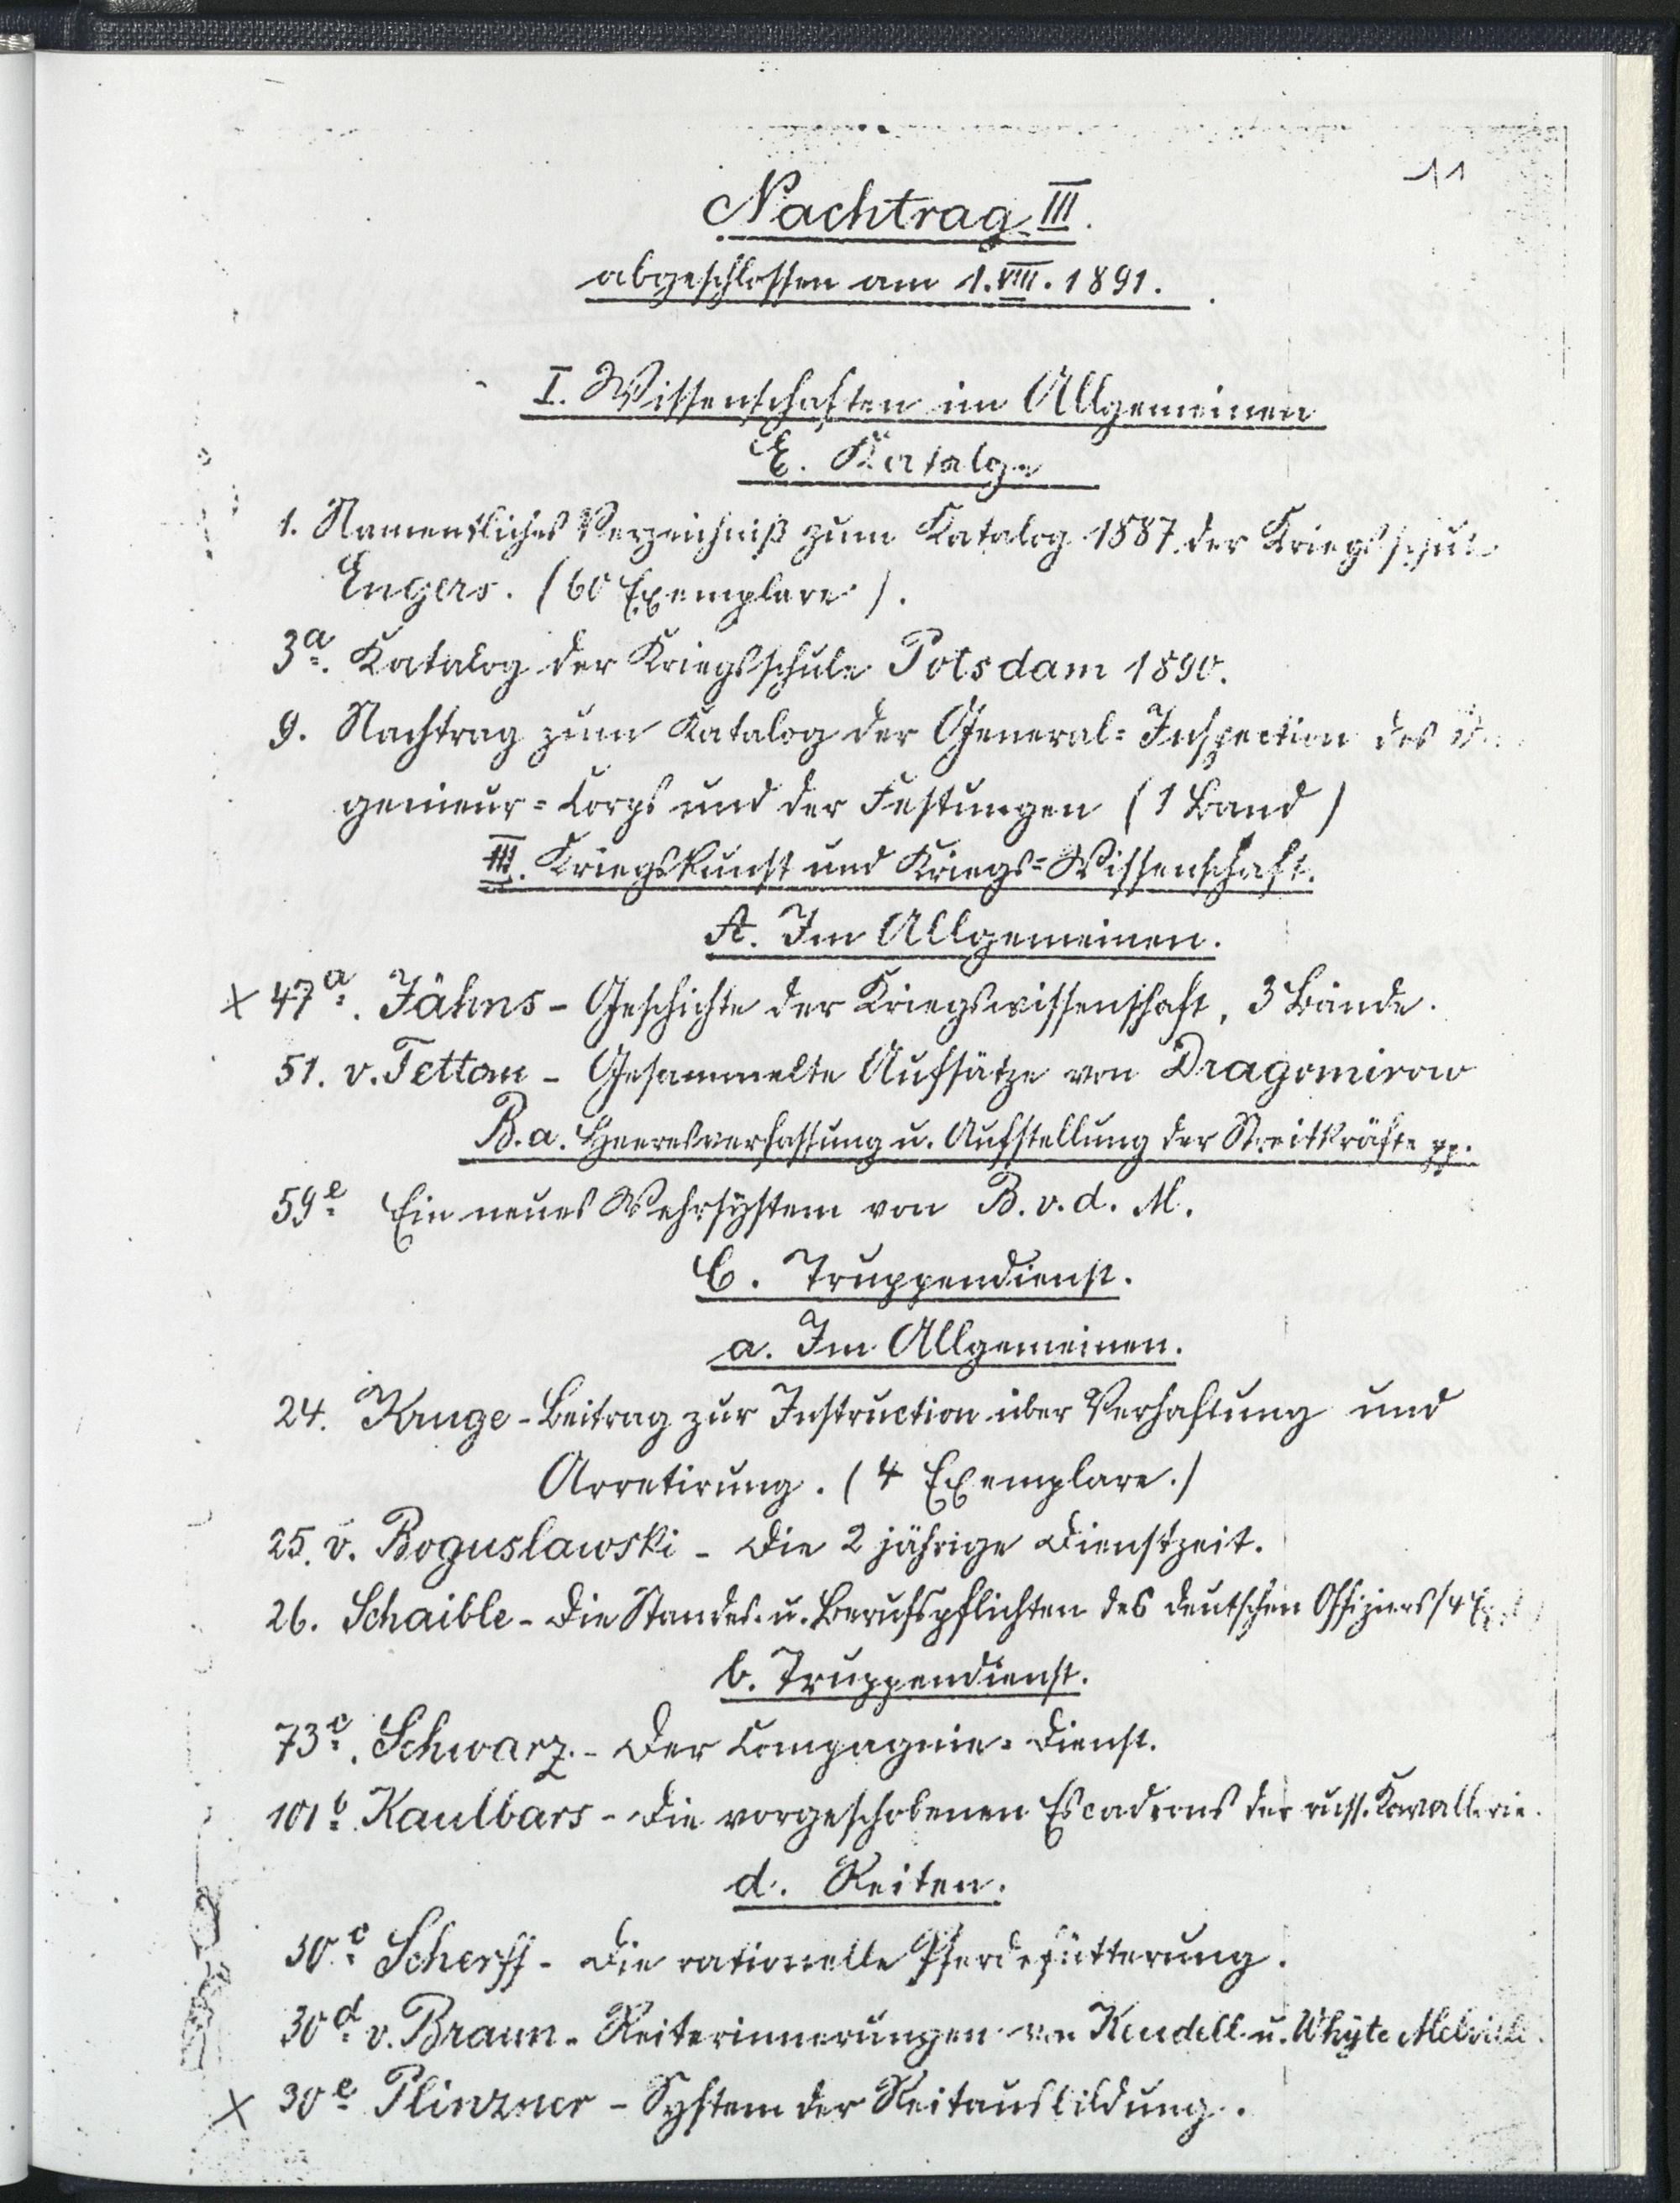 11
Nachtrag III.
abgeschlossen am 1.VIII.1891.
I. Wissenschaften im Allgemeinen
E. Kataloge
1. Namentliches Verzeichniß zum Katalog 1887 der Kriegsschule
Engers. (60 Exemplare).
3a. Katalog der Kriegsschule Potsdam 1890.
9. Nachtrag zum Katalog der General=Inspection des
genieur=Corps und der Festungen (1 Band)
III. Kriegskunst und Kriegs=Wissenschaft.
A. Im Allgemeinen.
x 47a. Jähns - Geschichte der Kriegswissenschaft, 3 Bände.
51. v. Tettau - Gesammelte Aufsätze von Dragomirow
B.a. Heeresverfassung u. Aufstellung der Streitkräfte pp.
59e Ein neues Wehrsystem von B. v. d. M.
C. Truppendienst.
a. Im Allgemeinen.
24. Kruge - Beitrag zur Instruction über Verhaftung und
Arretirung. (4 Exemplare.)
25. v. Boguslawski - Die 2 jährige Dienstzeit.
26. Schaible - Die Standes- u. Berufspflichten des deutschen Offiziers (4
b. Truppendienst.
73c. Schwarz. - Der Compagnie=Dienst.
101b. Kaulbars - Die vorgeschobenen Escadrons der russ. Kavallerie.
d. Reiten.
30c Scherff - Die rationelle Pferdefütterung.
30d v. Braun - Reiterinnerungen von Keudell u. Whyte Melville.
x 30e Plinzner - System der Reitausbildung.